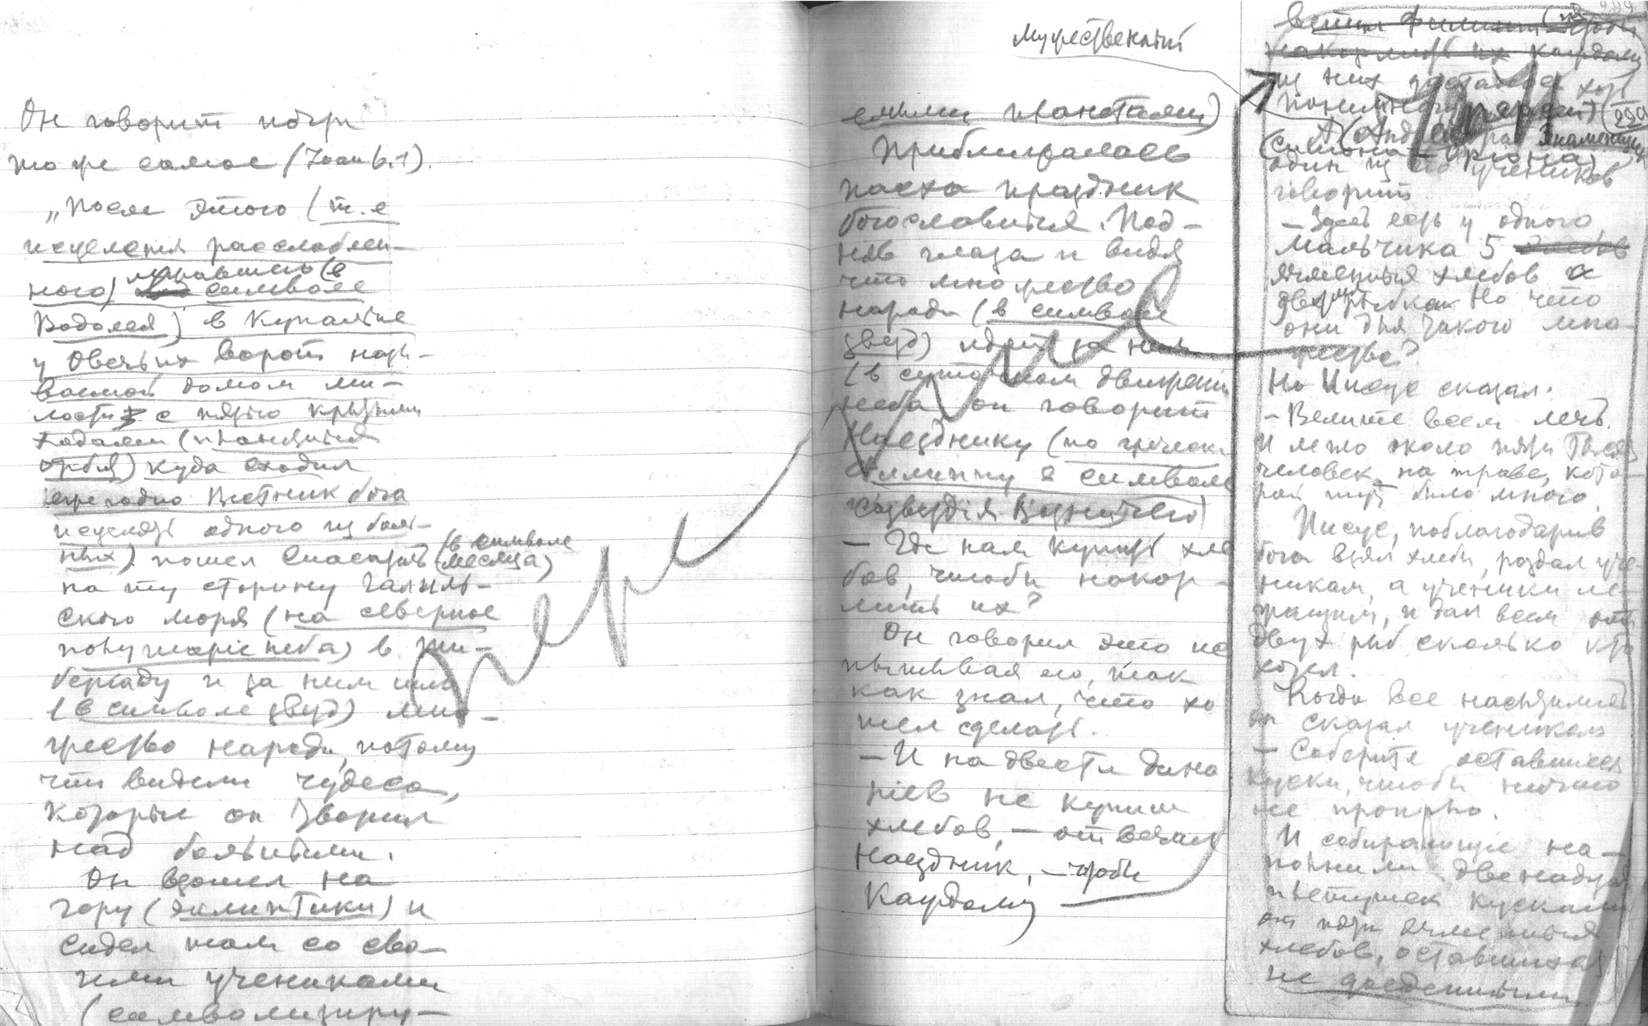 Он говорит почти
то же самое (Іоан 6.1).
„После этого (т.е
исцеления расслаблен-
ного) символе
Водолея) в Купальне
у Овечьих ворот назы-
ваемой домом ми-
лости с пятью крытыми
ходами (
) куда сходил
ежегодно Вестник бога
исцелять одного из боль-
ных) пошел Спаситель (в символе
месяца)
на ту сторону Галиле-
ского моря (на северное
полушаріе неба) в Ти-
беріаду и за ним шло
(в символе звезд) мно-
жество народа, потому
что видели чудеса,
которые он творил
над больными.
Он взошел на
гору (эклиптики) и
сидел там со сво-
ими учениками
(символизиру-
мужественный
емыми планетами)
Приближалась
пасха праздник
богославится. Под-
няв глаза и видя
что множество
народа (в символе
звезд) идет за ним
(в суточном движении
неба) он говорит
Наезднику (по гречески
Филиппу в символе
созвездія Возничего)
— Где нам купить хле
бов, чтобы накор-
мить их?
Он говорил это ис
пытывая его, так
как знал, что хо
тел сделать.
— И на двести дина
ріев не купим
хлебов, — отвечал
Наездник, — чтобы
Каждому
пере
из них досталось хоть
понемногу
один из его учеников
говорит
— Здесь есть у одного
мальчика 5 хлебов
ячменных хлебов и
две рыбки. Но что
они для такого мно-
жества?
Но Иисус сказал.
— Велите всем лечь.
И легло около пяти тысяч
человек на траве, кото-
рой тут было много.
Иисус, поблагодарив
бога взял хлебы, роздал уче-
никам, а ученики ле-
жащим, и дал всем от
двух рыб сколько кто
хотел.
Когда все насытились
он сказал ученикам
— Соберите оставшиеся
куски, чтобы ничто
не пропало.
И собирающие на-
полнили двенадцать
плетушек кусками
от пяти ячменных
хлебов, оставшихся
не съеденными